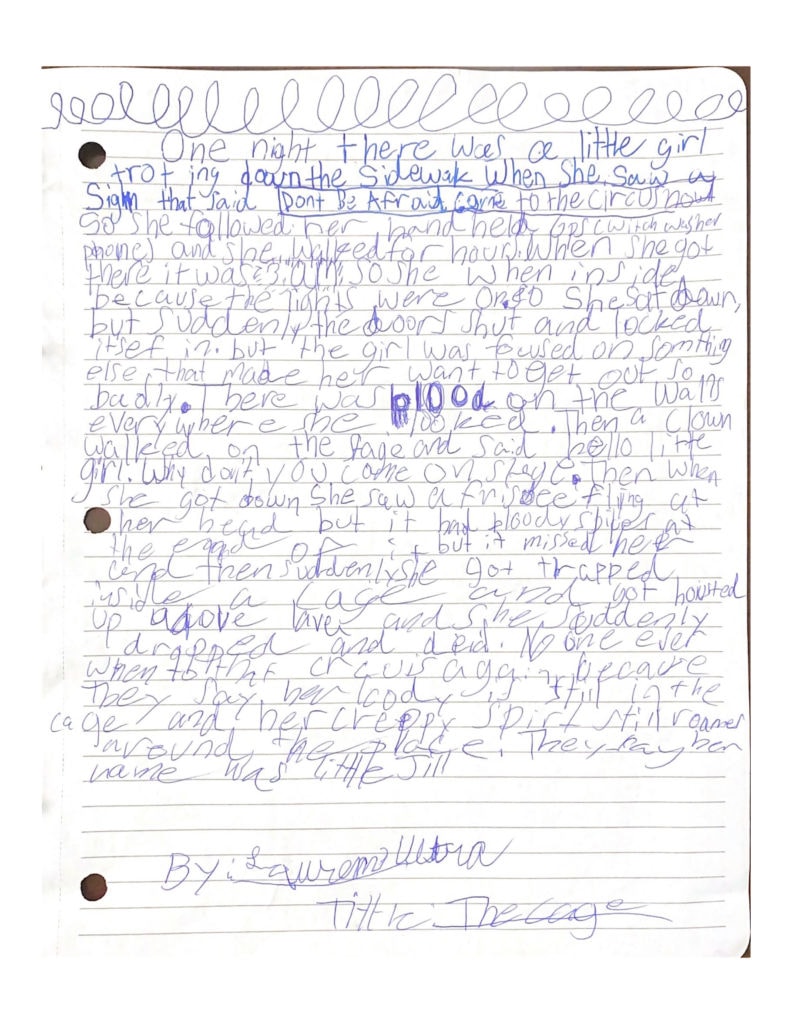 One night there was a little girl
trot ing down the Sidewak When She Saw a
Sign that said Dont Be Afraid Come to the circus now
So she followed her hand held GPS (witch was her
phone) and she walked for hours. When she got
there it was 3:00 AM, so she when inside
because the lights were on. So She Sat down,
but suddenly the doors shut and locked
itsef in. but the girl was foused on somthing
else, that made her want to get out so
badly. There was blood on the walls
everywhere she looked. Then a clown
walked on the stage and said hello little
girl. Why don't you come on stage. Then when
she got down She saw a frisbee flying at
her head but it had bloody spikes at
the end of it, but it missed her
and then suddenly she got trapped
inside a cage and got hoisted
up above lava and she suddenly
dropped and deid. No one ever
when to that circuis again because
They say her body is still in the
cage and her creppy spirt still roames
around the place. They say her
name was little Jill
By:
Tittle: The cage